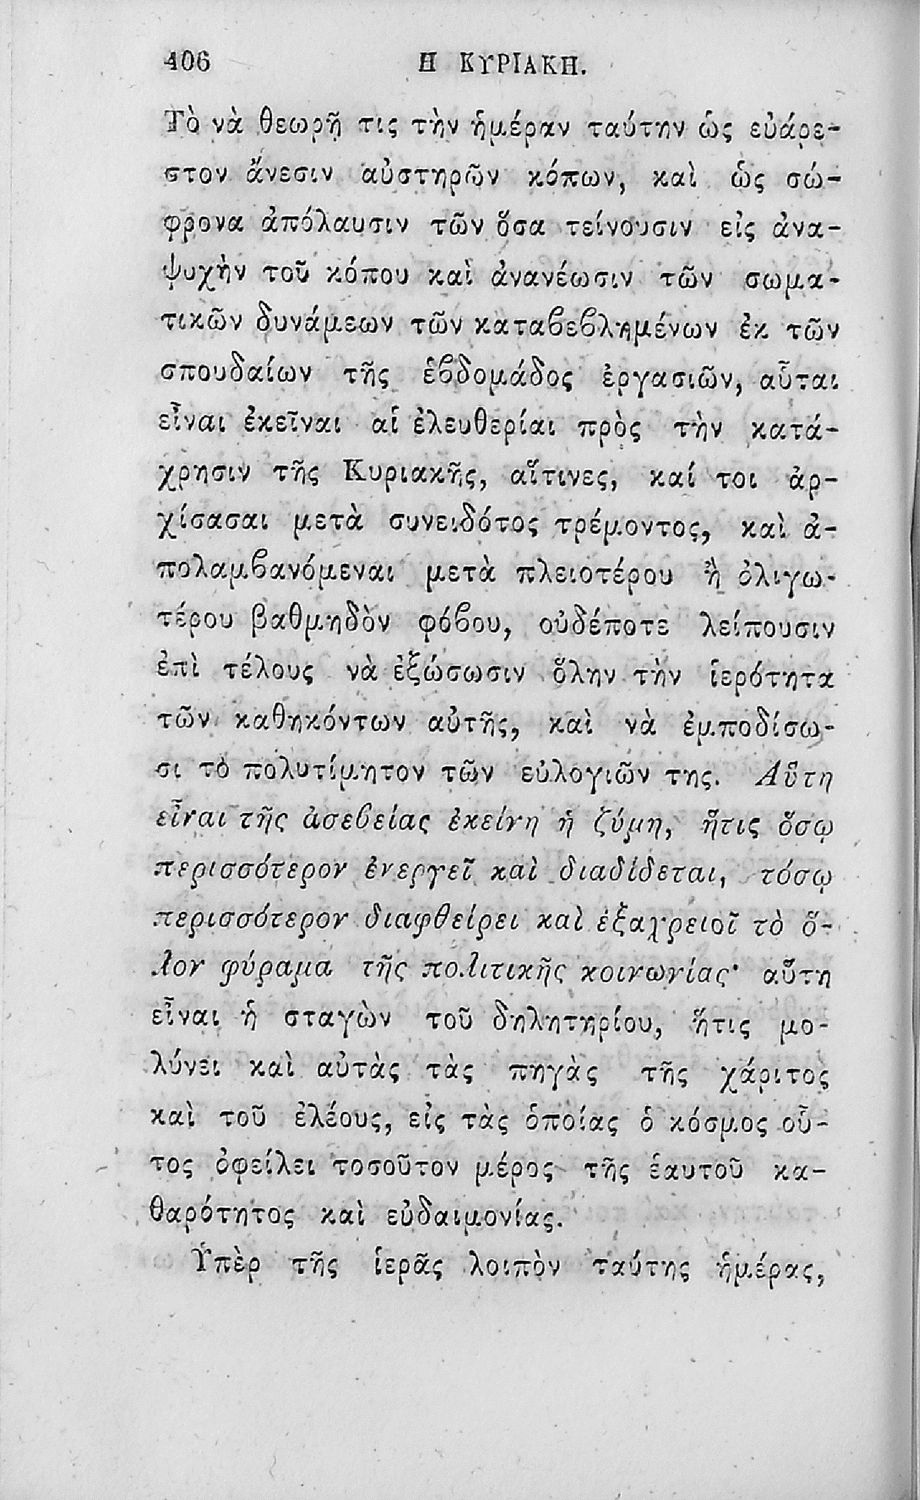 406 Η ΚΥΡΙΑΚΗ.
Τὸ νὰ θεωρῇ τις τὴν ἡμέραν ταύτην ὡς εὐάρε-
στον ἄνεσιν αὐστηρῶν κόπων, καὶ ὡς σώ-
φρονα ἀπόλαυσιν τῶν ὅσα τείνουσιν εἰς ἀνα-
ψυχὴν τοῦ κόπου καὶ ἀνανέωσιν τῶν σωμα-
τικῶν δυνάμεων τῶν καταβεβλημένων ἐκ τῶν
σπουδαίων τῆς ἑβδομάδος ἐργασιῶν, αὗται
εἶναι ἐκεῖναι αἱ ἐλευθερίαι πρὸς τὴν κατά-
χρησιν τῆς Κυριακῆς, αἵτινες, καί τοι ἀρ-
χίσασαι μετὰ συνειδότος τρέμοντος, καὶ ἀ-
πολαμβανόμεναι μετὰ πλειοτέρου ἢ ὀλιγω-
τέρου βαθμηδὸν φόβου, οὐδέποτε λείπουσιν
ἐπὶ τέλους νὰ ἐξώσωσιν ὅλην τὴν ἱερότητα
τῶν καθηκόντων αὐτῆς, καὶ νὰ ἐμποδίσω-
σι τὸ πολυτίμητον τῶν εὐλογιῶν της. Αὕτη
εἶναι τῆς ἀσεβείας ἐκείνη ἡ ζύμη, ἥτις ὅσῳ
περισσότερον ἐνεργεῖ καὶ διαδίδεται, τόσῳ
περισσότερον διαφθείρει καὶ ἐξαχρειοῖ τὸ ὅ-
λον φύραμα τῆς πολιτικῆς κοινωνίας· αὕτη
εἶναι ἡ σταγὼν τοῦ δηλητηρίου, ἥτις μο-
λύνει καὶ αὐτὰς τὰς πηγὰς τῆς χάριτος
καὶ τοῦ ἐλέους, εἰς τὰς ὁποίας ὁ κόσμος οὗ-
τος ὀφείλει τοσοῦτον μέρος τῆς ἑαυτοῦ κα-
θαρότητος καὶ εὐδαιμονίας.
Ὑπὲρ τῆς ἱερᾶς λοιπὸν ταύτης ἡμέρας,